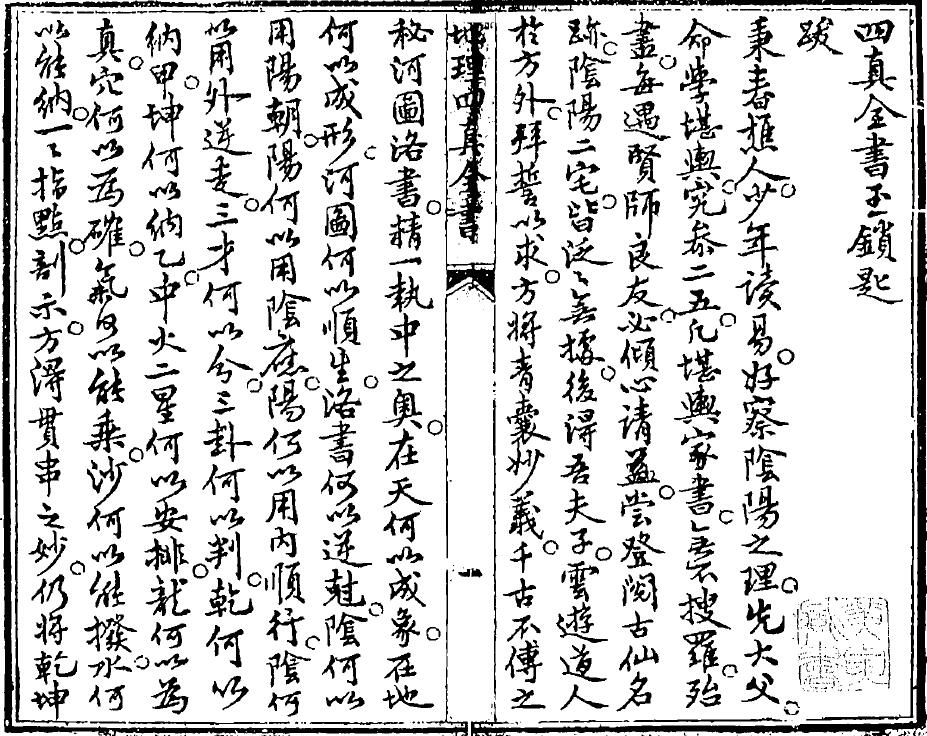 四真全書玉鎖匙
跋
秉春樵人少年讀易好察陰陽之理先大父
命學堪輿究叅二五凡堪輿家書無不搜羅殆
盡每遇賢師良友必傾心請益嘗登閱古仙名
跡陰陽二宅皆泛〻無據後得吾夫子雲遊道人
於方外拜誓以求方將青囊妙義千古不傳之
地理四真全書
秘河圖洛書精一執中之奥在天何以成象在地
何以成形河圖何以順生洛書何以逆尅陰何以
用陽朝陽何以用陰應陽何以用內順行陰何
以用外逆走三才何以分三卦何以判乾何以
納甲坤何以納乙中火二星何以安排龍何以為
真穴何以為確氣何以能乘沙何以能撥水何
以能納一〻指點剖示方得貫串之妙仍將乾坤